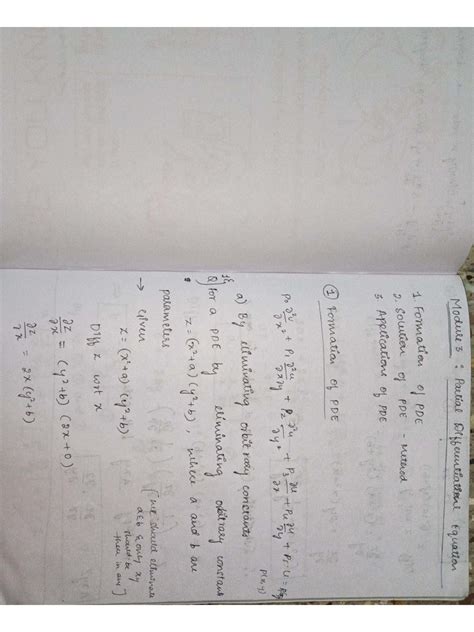 Module 3 : Partial Differentiationl Equation
1 Formation of PDE
2. Solution of PDE - Method
3. Applications of PDE
① Formation of PDE
P₀ ∂²u/∂x² + P₁ ∂²u/∂x∂y + P₂ ∂²u/∂y² + P₃ ∂u/∂x + P₄ ∂u/∂y + P₅ u =
P(x,y)
a) By eliminating orbitrary constants
Q) For a PDE by eliminating orbitrary constant
z = (x²+a)(y²+b), where a and b are
parameters
→ Given
z = (x²+a)(y²+b) [we should eliminate
a & b & only xy
should be
there in ans]
Diff z wrt x
∂z/∂x = (y²+b)(2x+0)
∂z/∂x = 2x(y²+b)